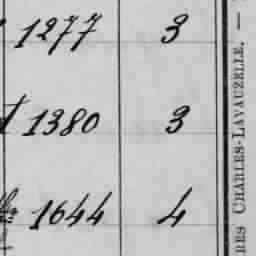 1277 3
1380 3
1644 4
RES CHARLES-LAVAUZELLE. —